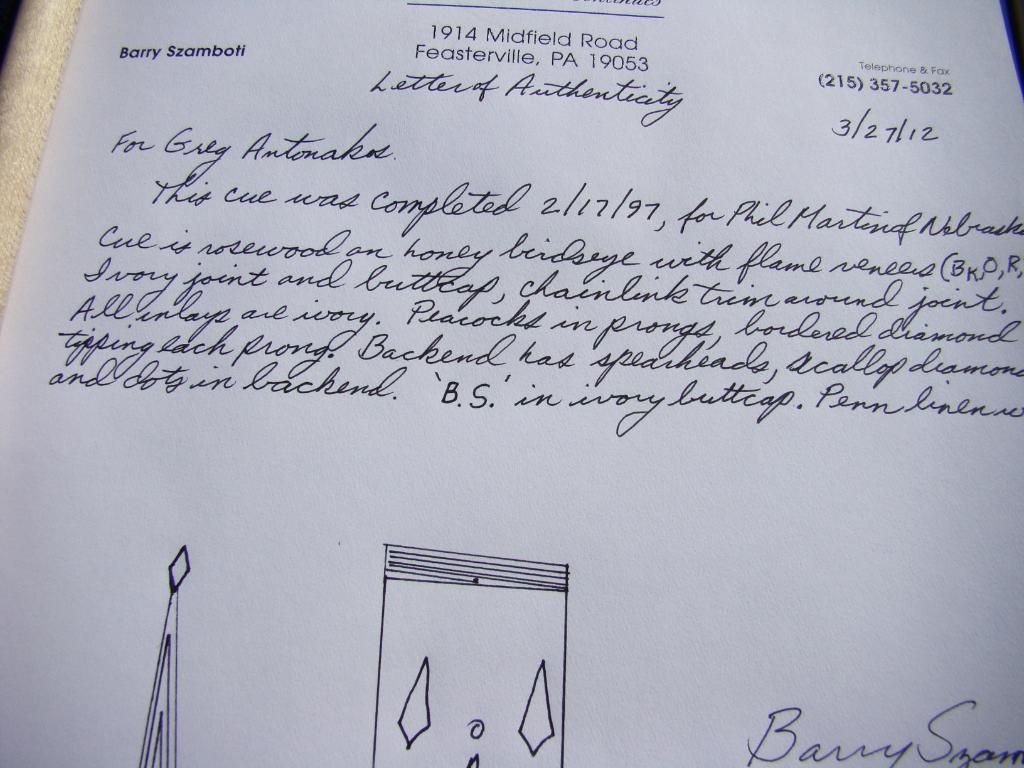 Barry Szamboti
1914 Midfield Road
Feasterville, PA 19053
Telephone & Fax
(215) 357-5032
Letter of Authenticity
3/27/12
For Greg Antonakos.
This cue was completed 2/17/97, for Phil Martin of Nebrask
Cue is rosewood on honey birdseye with flame veneers (BK, O, R,
Ivory joint and buttcap, chainlink trim around joint.
All inlays are ivory. Peacocks in prongs, bordered diamond
tipping each prong. Backend has spearheads, scallop diamond
and dots in backend. 'B.S.' in ivory buttcap. Penn linen w
Barry Szam